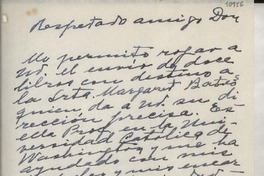 10956
Respetado amigo Don
Me permito rogar a
Ud. el envío de doce
libros con destino a
la Srta. Margaret Bates
quien da a Ud. su di-
rección precisa. Es
ella Prof. en la Uni-
versidad Católica de
Washington y me ha
ayudado con mis